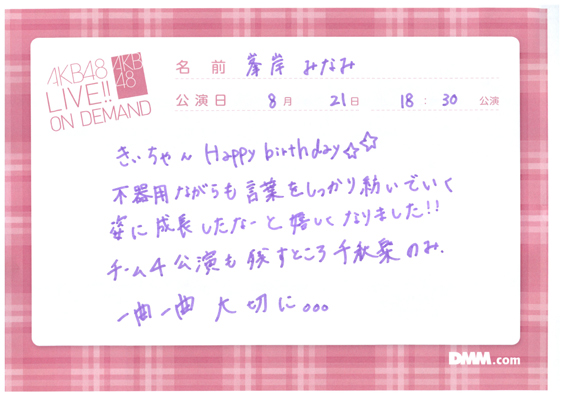 AKB48
LIVE!!
ON DEMAND
AKB
48
名 前 峯岸 みなみ
公演日 8月 21日 18:30 公演
きぃちゃん Happy birthday☆☆
不器用ながらも言葉をしっかり紡いでいく
姿に成長したなーと嬉しくなりました!!
チーム4公演も残すところ千秋楽のみ.
一曲一曲 大切に...
DMM.com